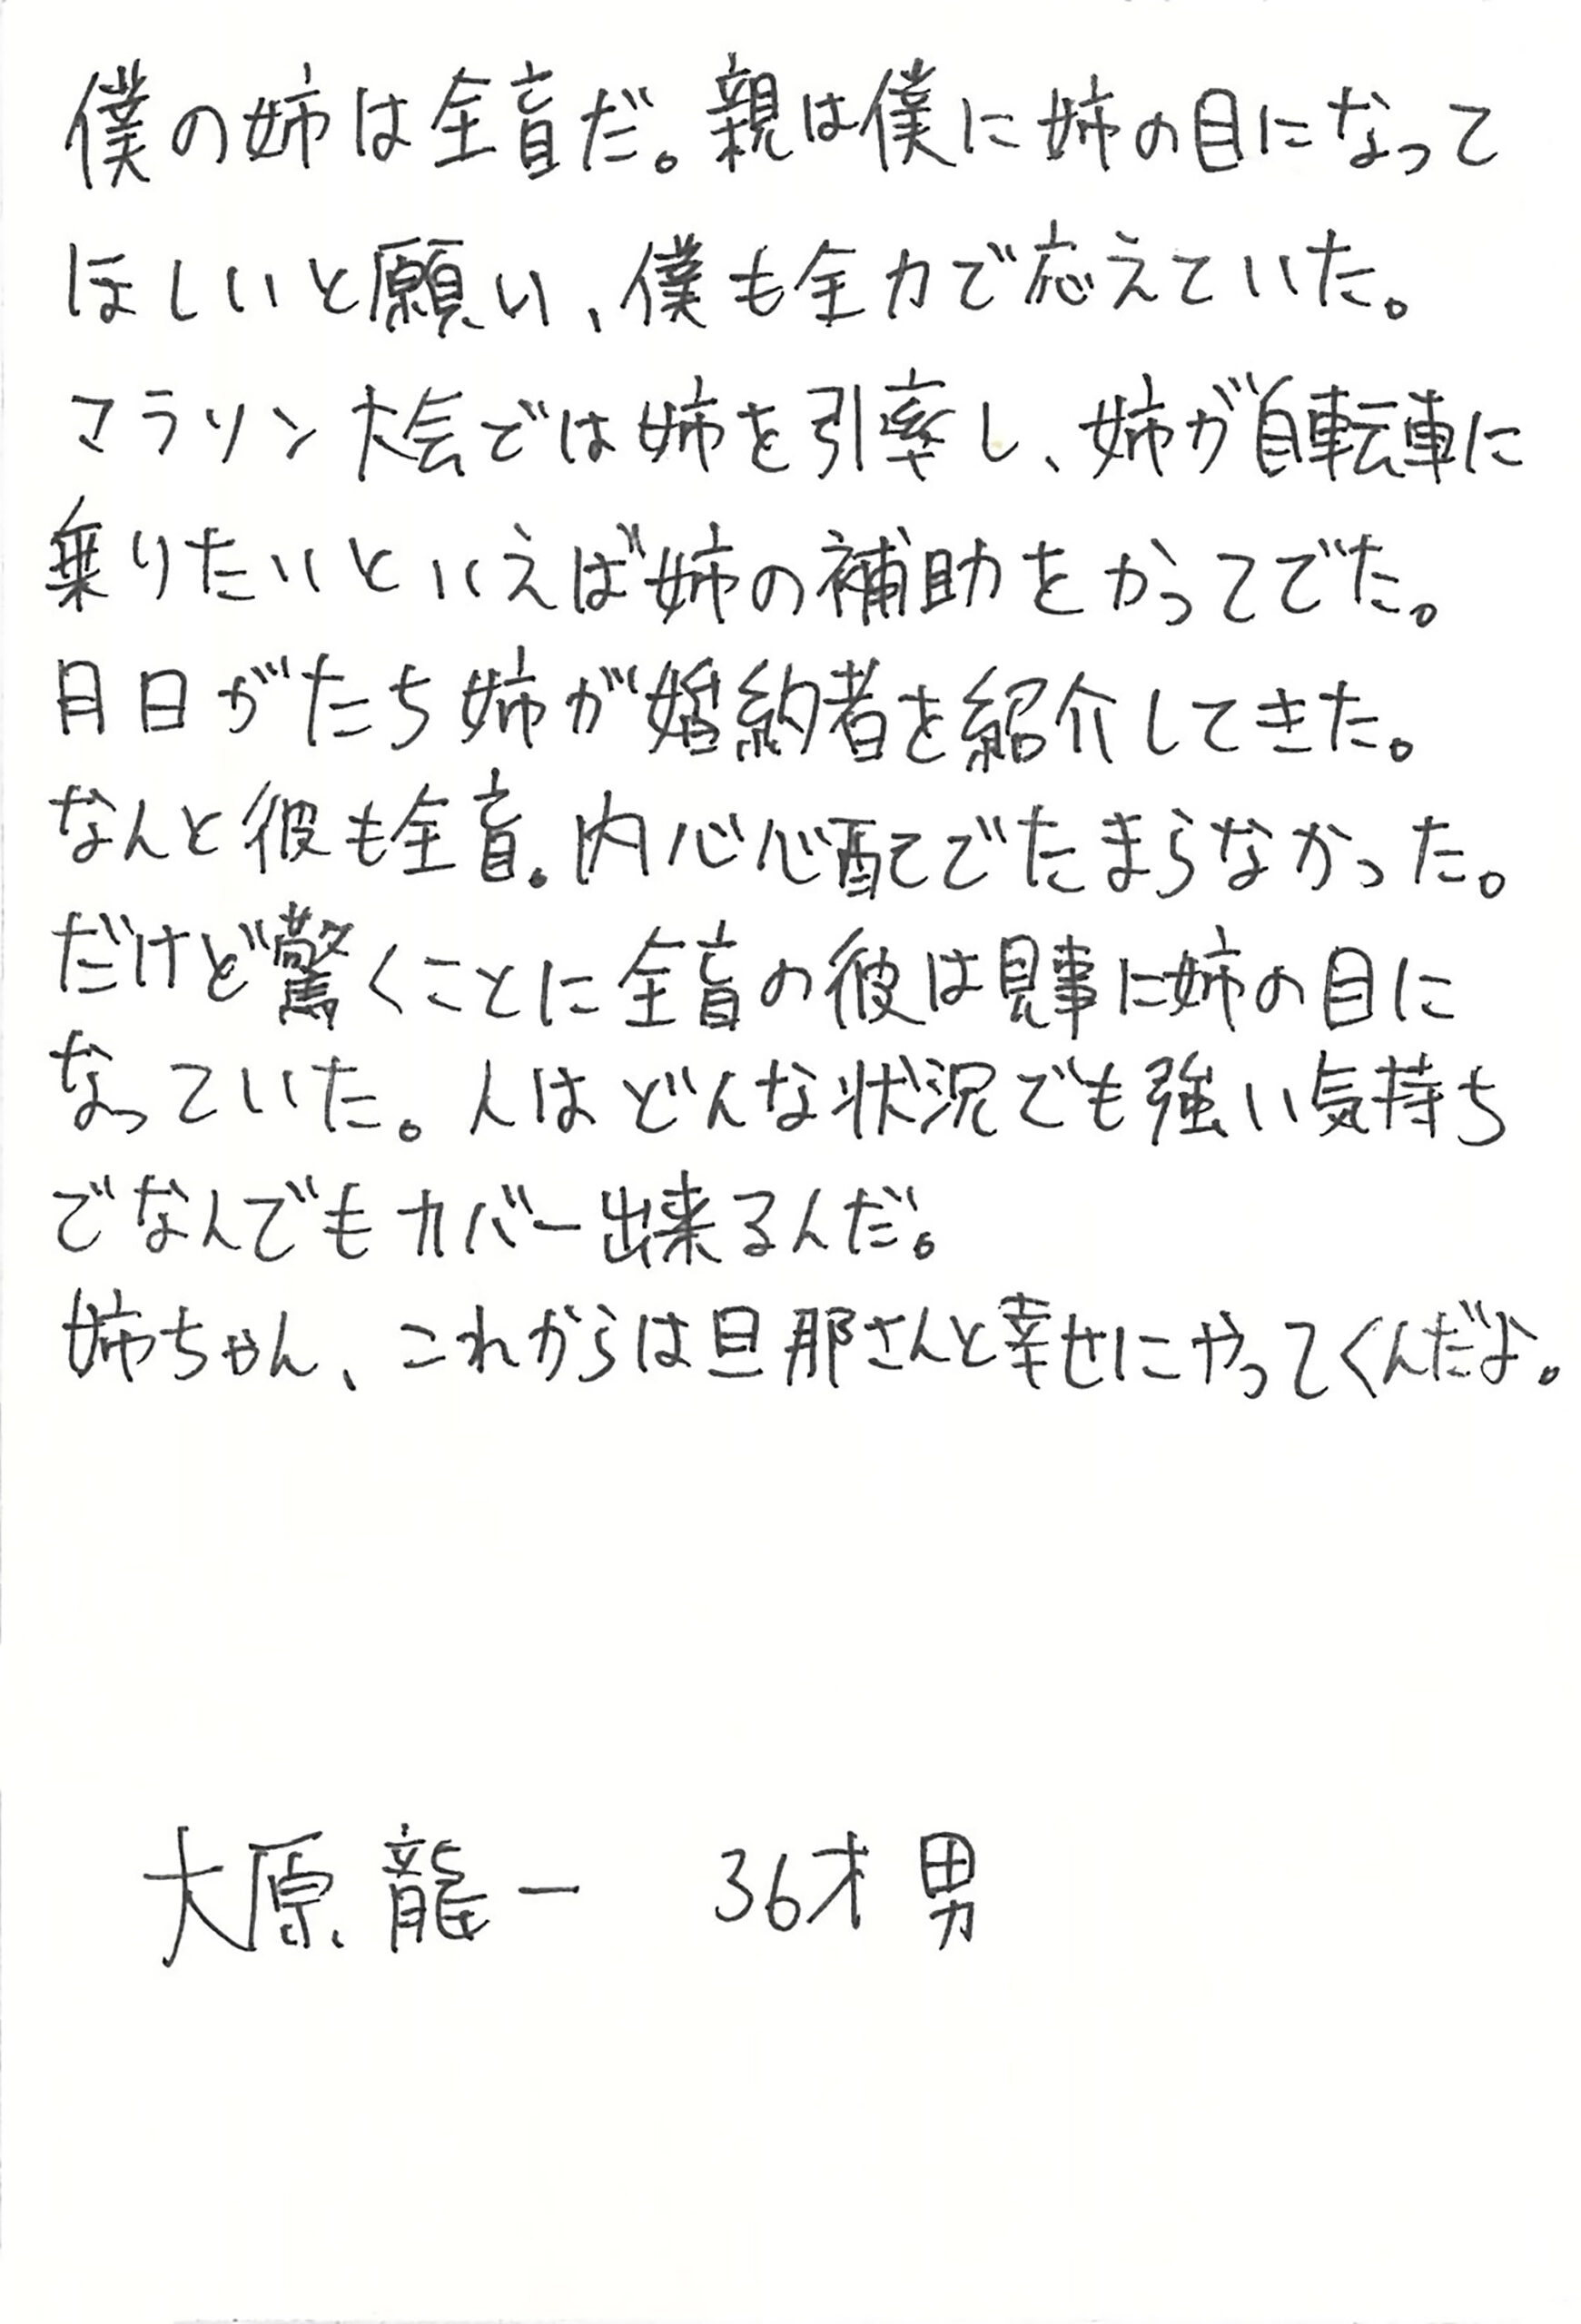 僕の姉は全盲だ。親は僕に姉の目になって
ほしいと願い、僕も全力で応えていた。
マラソン大会では姉を引率し、姉が自転車に
乗りたいといえば姉の補助をかってでた。
月日がたち姉が婚約者を紹介してきた。
なんと彼も全盲。内心心配でたまらなかった。
だけど驚くことに全盲の彼は見事に姉の目に
なっていた。人はどんな状況でも強い気持ち
でなんでもカバー出来るんだ。
姉ちゃん、これからは旦那さんと幸せにやってくんだよ。
大原龍一 36才 男